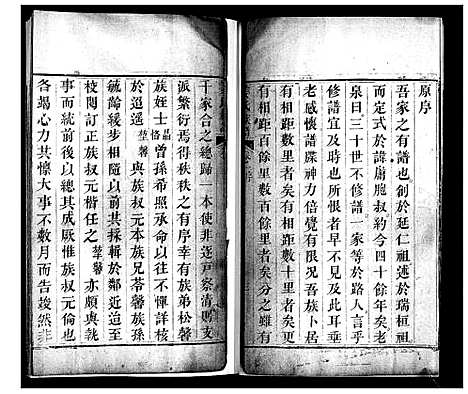 原序
吾家之有譜也創於延仁祖述於瑞桓祖
而定式於諱庸胞叔約今四十餘年矣老
泉曰三十世不修譜一家等於路人言乎
修譜宜及時也所恨者早不見及此耳垂
老感懷諜牒神力倍覺有限况吾族卜居
有相距數里者矣有相距數十里者矣更
有相距百餘里數百餘里者矣分之雖有
千家合之總歸一本使非逐戶祭清則支
派繁衍焉得秩秩之有序幸有族弟松馨
族姪士恪昌曾孫希照承命以往不憚詳核
於迢遥莘馨與族叔元本族兄荅馨族孫
毓齡緩步相隨以前其採輯於鄰近迨至
校閱訂正族叔元楷任之莘馨亦頗與訛
事而統前後以總其成厥惟族叔元倫也
各竭心力共懔大事不數月而告竣然非